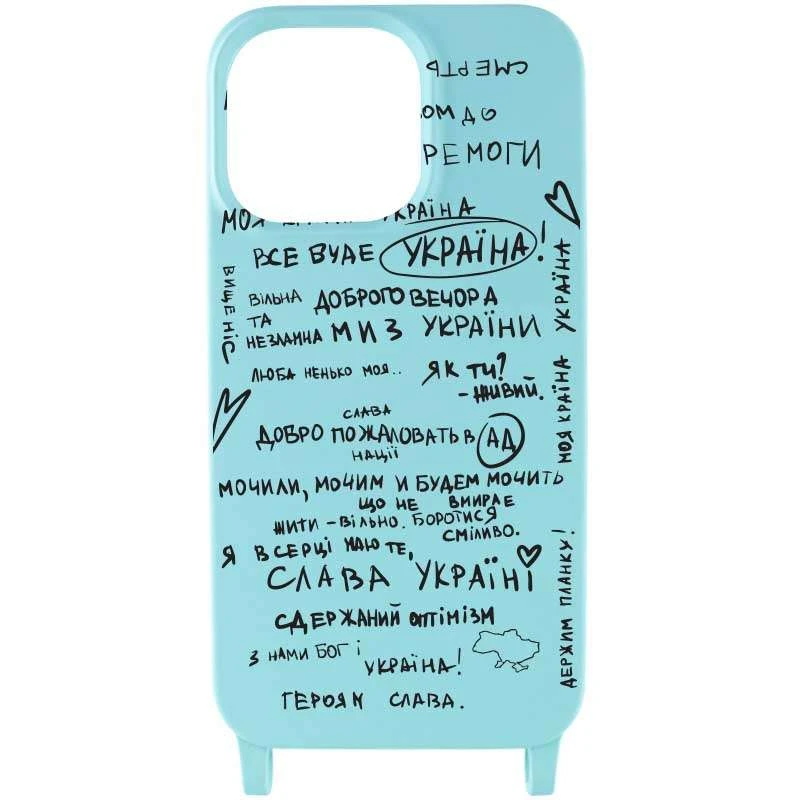 СМЕРТЬ
ОМ ДО
РЕМОГИ
МОЯ КРАЇНА
ВСЕ БУДЕ УКРАЇНА!
ВИЩЕ НІС
ВІЛЬНА ДОБРОГО ВЕЧОРА
ТА
НЕЗЛАМНА МИ З УКРАЇНИ
ЛЮБА НЕНЬКО МОЯ..
ЯК ТИ?
- ЖИВИЙ.
МОЯ КРАЇНА УКРАЇНА
СЛАВА
ДОБРО ПОЖАЛОВАТЬ В АД
НАЦІЇ
МОЧИЛИ, МОЧИМ И БУДЕМ МОЧИТЬ
ЩО НЕ ВМИРАЕ
ЖИТИ - ВІЛЬНО. БОРОТИСЯ
СМІЛИВО.
Я В СЕРЦІ МАЮ ТЕ,
СЛАВА УКРАЇНІ
СДЕРЖАНИЙ ОПТІМІЗМ
З НАМИ БОГ І
УКРАЇНА!
ДЕРЖИМ ПЛАНКУ!
ГЕРОЯМ СЛАВА.